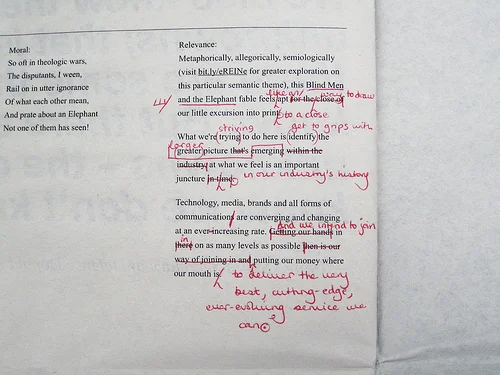 Moral:
So oft in theologic wars,
The disputants, I ween,
Rail on in utter ignorance
Of what each other mean,
And prate about an Elephant
Not one of them has seen!
Relevance:
Metaphorically, allegorically, semiologically
(visit bit.ly/eREINe for greater exploration on
this particular semantic theme), this Blind Men
and the Elephant fable feels apt for the close of
our little excursion into print
to draw
to a close
striving
get to grips with
What we're trying to do here is identify the
larger
greater picture that's emerging within the
industry at what we feel is an important
juncture in time.
in our industry's history
Technology, media, brands and all forms of
communications are converging and changing
at an ever-increasing rate. Getting our hands in
And we intend to join
in
there on as many levels as possible then is our
way of joining in and putting our money where
our mouth is.
to deliver the very
best, cutting-edge,
ever-evolving service we
can